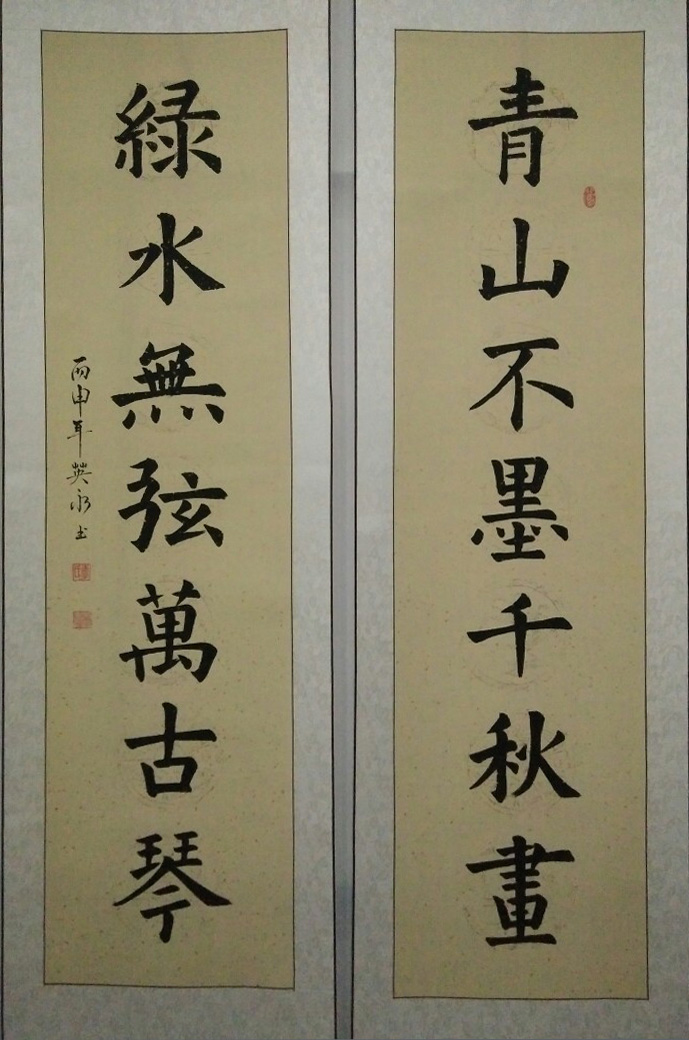 青山不墨千秋畫
綠水無弦萬古琴
丙申年英永书